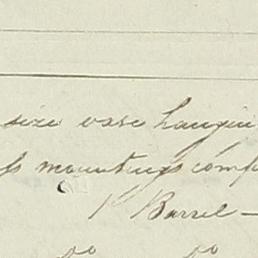 size vase hangin
ss mountings comp
1 Barrel —
do do